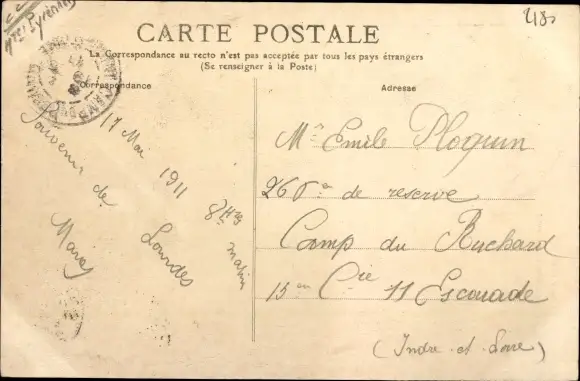 Htes Pyrénées
418
CARTE POSTALE
La Correspondance au recto n'est pas acceptée par tous les pays étrangers
(Se renseigner à la Poste)
Correspondance
Adresse
17 Mai 1911 8 Hres matin
Souvenir de Lourdes
Mr Emile Ploquin
26 de reserve
Camp du Ruchard
15 en Cie 11 Escouade
(Indre et Loire)